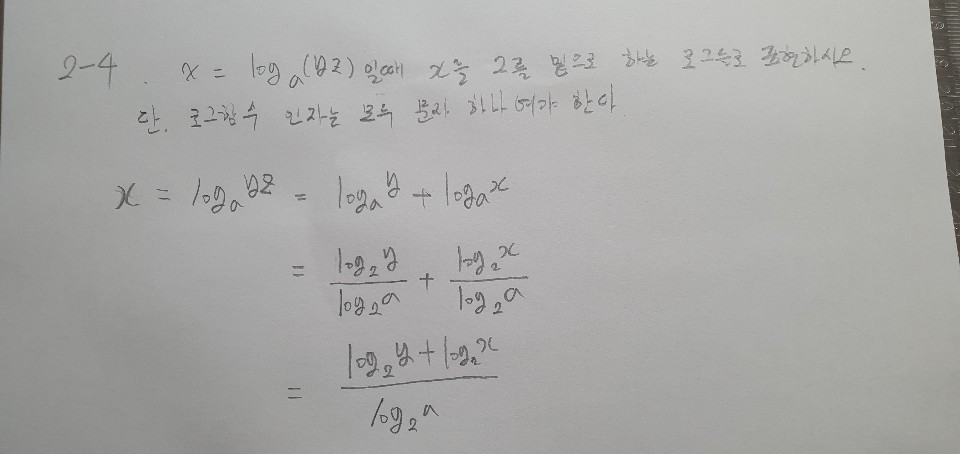 2-4. x = log_a(yz) 일때 x를 2를 밑으로 하는 로그로 표현하시오.
단. 로그함수 인자는 모두 문자 하나여야 한다
x = log_a yz = log_a y + log_a x
= log_2 y / log_2 a + log_2 x / log_2 a
= (log_2 y + log_2 x) / log_2 a